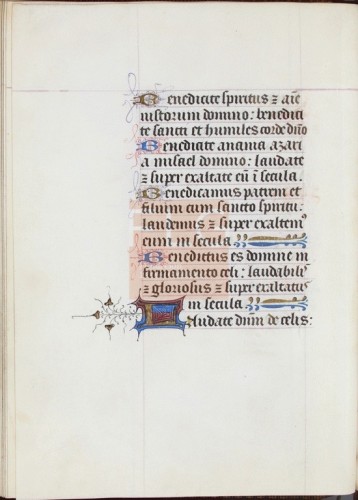 Benedicite spiritus ⁊ aīe
iustorum domino: benedici
te sancti et humiles corde dn̄o
Benedicite anania azari
a misael domino: laudate
⁊ super exaltate eū ī secula.
Benedicamus patrem et
filium cum sancto spiritu:
laudemus ⁊ super exaltem⁹
eum in secula
Benedictus es domine in
firmamento celi: laudabil᷒
⁊ gloriosus ⁊ super exaltatus
in secula
Laudate dn̄m de celis: